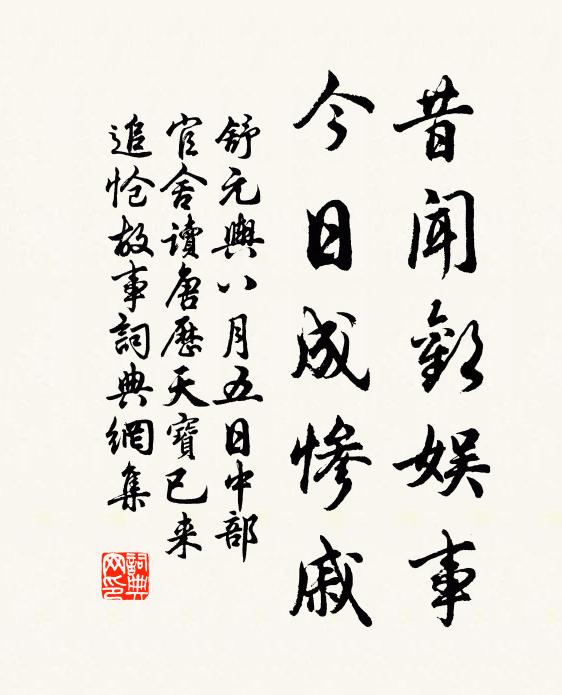 昔闻歡娱事
今日成惨戚
舒元輿八月五日中部
官舍读唐歷天寶已来
追怆故事詞典網集
詞典网印